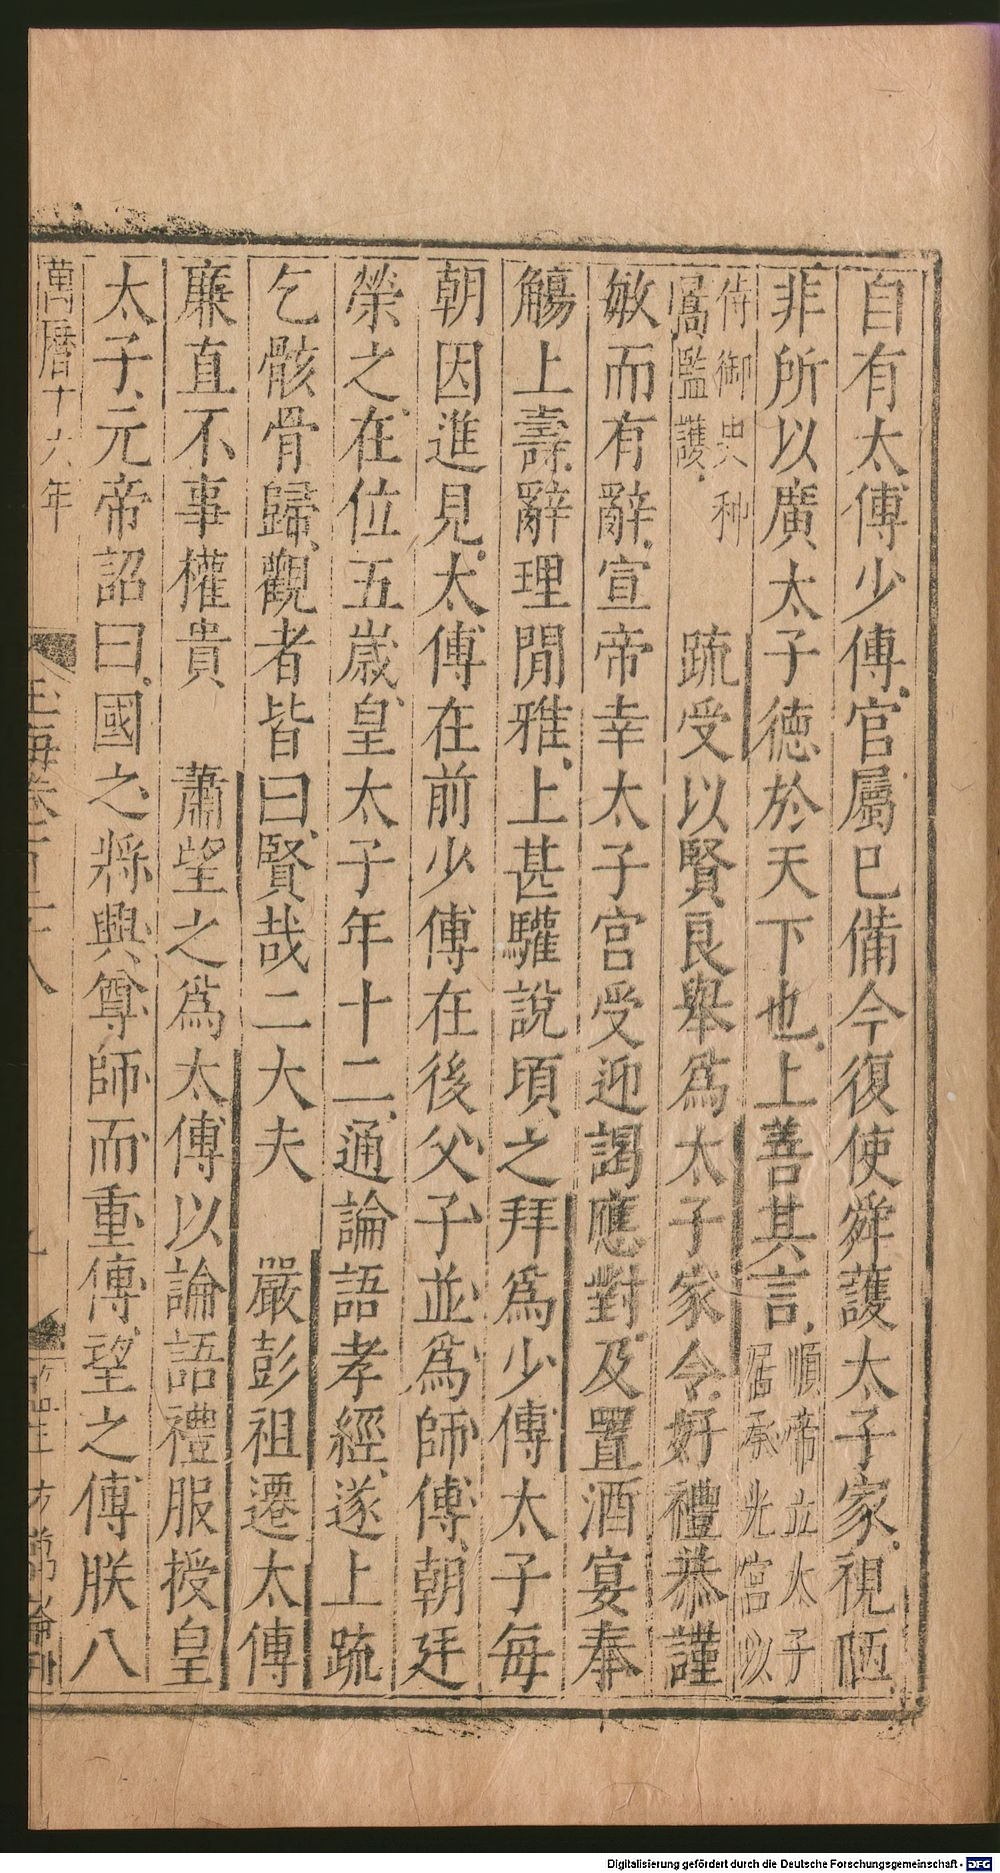 自有太傅少傅官屬巳備今復使舜護太子家視陋
非所以廣太子德於天下也上善其言順帝立太子居承光宮以
侍御史种暠監護 疏受以賢良舉爲太子家令好禮恭謹
敏而有辭宣帝幸太子宮受迎謁應對及置酒宴奉
觴上壽辭理閒雅上甚驩說頃之拜爲少傅太子每
朝因進見太傅在前少傅在後父子並爲師傅朝廷
榮之在位五歲皇太子年十二通論語孝經遂上疏
乞骸骨歸觀者皆曰賢哉二大夫 嚴彭祖遷太傅
廉直不事權貴 蕭望之爲太傅以論語禮服授皇
太子元帝詔曰國之將興尊師而重傅望之傅朕八
萬曆十六年
玉海卷百二十八
九
Digitalisierung gefördert durch die Deutsche Forschungsgemeinschaft - DFG